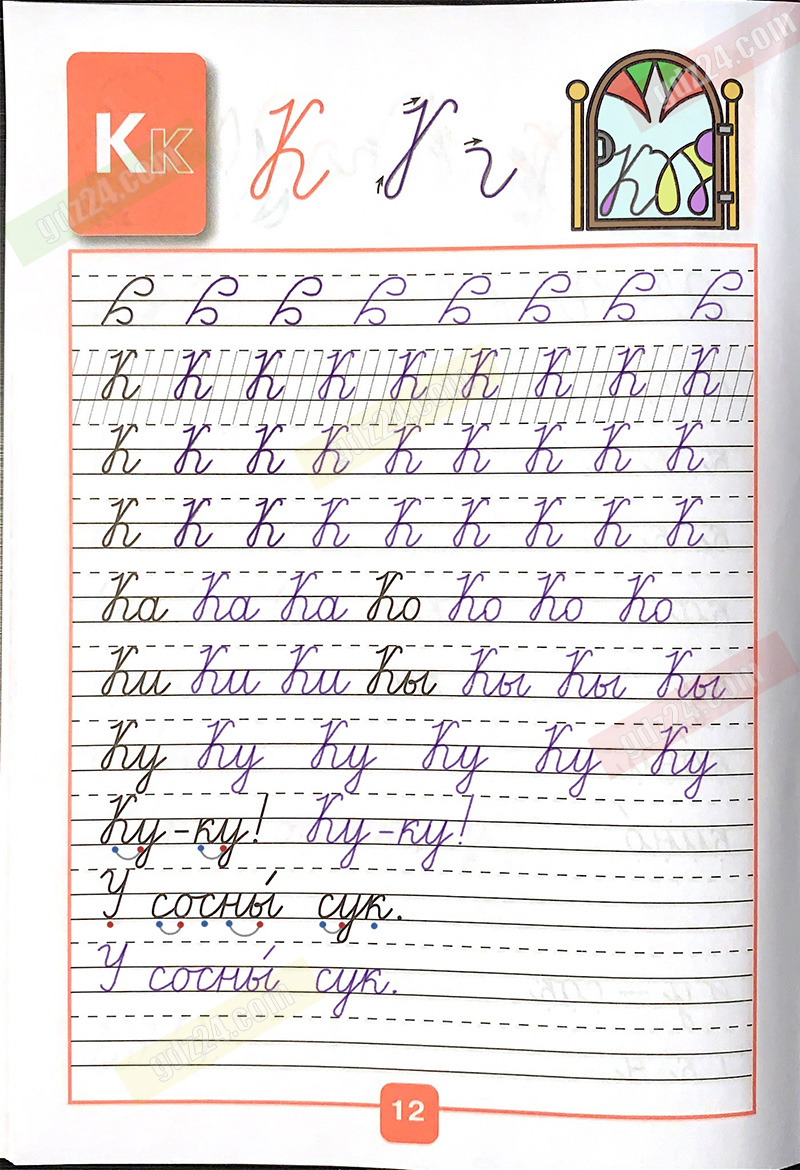 Кк К К г
К К К К К К К К К
К К К К К К К К К
К К К К К К К К К
Ка Ка Ка Ко Ко Ко Ко
Ки Ки Ки Кы Кы Кы Кы
Ку Ку Ку Ку Ку Ку
Ку-ку! Ку-ку!
У сосны́ сук.
У сосны́ сук.
12
gdz24.com
gdz24.com
gdz24.com
gdz24.com
gdz24.com